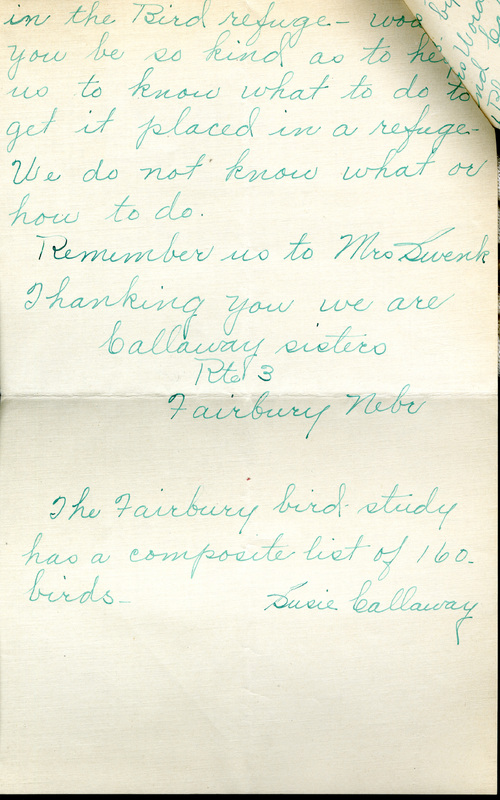 in the Bird refuge -
you be so kind as to
us to know what to do to
get it placed in a refuge-
We do not know what or
how to do.
Remember us to Mrs Swenk
Thanking you we are
Callaway sisters
Rte 3
Fairbury Nebr
The Fairbury bird study
has a composite list of 160-
birds-
Susie Callaway